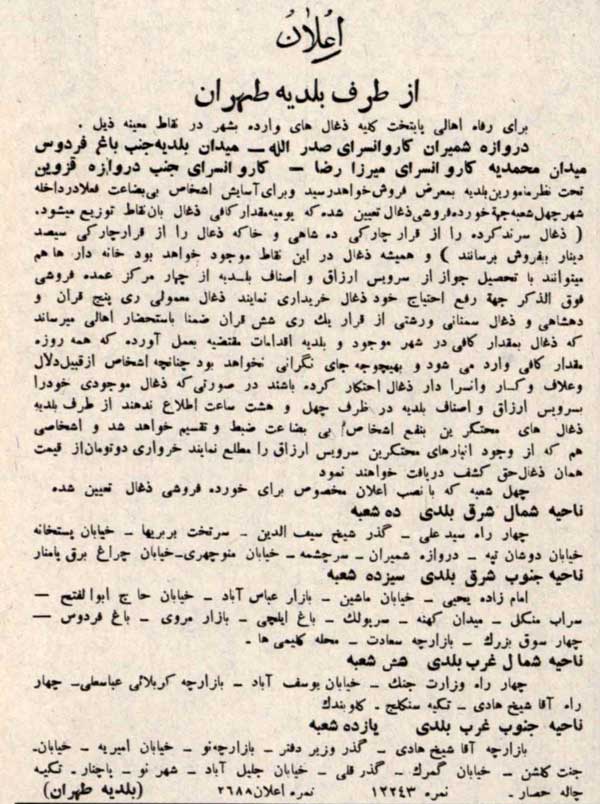 اعلان
از طرف بلدیه طهران
برای رفاه اهالی پایتخت کلیه ذغال های وارده بشهر در نقاط معینه ذیل .
دروازه شمیران کاروانسرای صدر الله — میدان بلدیه جنب باغ فردوس
میدان محمدیه کاروانسرای میرزا رضا — کاروانسرای جنب دروازه قزوین
تحت نظر مامورین بلدیه بمعرض فروش خواهد رسید و برای آسایش اشخاص بی بضاعت فعلا در داخله
شهر چهل شعبه جهة خورده فروشی ذغال تعیین شده که یومیه مقدار کافی ذغال بان نقاط توزیع میشود.
( ذغال سرند کرده را از قرار چارکی ده شاهی و خاکه ذغال را از قرار چارکی سیصد
دینار بفروش برسانند ) و همیشه ذغال در این نقاط موجود خواهد بود خانه دار ها هم
میتوانند با تحصیل جواز از سرویس ارزاق و اصناف بلدیه از چهار مرکز عمده فروشی
فوق الذکر جهة رفع احتیاج خود ذغال خریداری نمایند ذغال معمولی ری پنج قران و
دهشاهی و ذغال سمنانی ورشتی از قرار یك ری شش قران ضمنا باستحضار اهالی میرساند
که ذغال بمقدار کافی در شهر موجود و بلدیه اقدامات مقتضیه بعمل آورده که همه روزه
مقدار کافی وارد می شود و بهیچوجه جای نگرانی نخواهد بود چنانچه اشخاص از قبیل دلال
وعلاف وکسار وانسرا دار ذغال احتکار کرده باشند در صورتی که ذغال موجودی خودرا
بسرویس ارزاق و اصناف بلدیه در ظرف چهل و هشت ساعت اطلاع ندهند از طرف بلدیه
ذغال های محتکر ین بنفع اشخاص بی بضاعت ضبط و تقسیم خواهد شد و اشخاصی
هم که از وجود انبارهای محتکرین سرویس ارزاق را مطلع نمایند خرواری دوتومان از قیمت
همان ذغال حق کشف دریافت خواهند نمود
چهل شعبه که با نصب اعلان مخصوص برای خورده فروشی ذغال تعیین شده
ناحیه شمال شرق بلدی ده شعبه
چهار راه سید علی — گذر شیخ سیف الدین — سرتخت بربریها — خیابان پستخانه
خیابان دوشان تپه — دروازه شمیران — سرچشمه — خیابان منوچهری — خیابان چراغ برق پامنار
ناحیه جنوب شرق بلدی سیزده شعبه
امام زاده یحیی — خیابان ماشین — بازار عباس آباد — خیابان حاج ابوالفتح —
سراب منگل — میدان کهنه — سرپولك — باغ ایلچی — بازار مروی — باغ فردوس —
چهار سوق بزرك — بازارچه سعادت — محله کلیمی ها .
ناحیه شمال غرب بلدی شش شعبه
چهار راه وزارت جنك — خیابان یوسف آباد — بازارچه کربلائی عباسعلی — چهار
راه آقا شیخ هادی — تکیه سنگلج . گلوبندك
ناحیه جنوب غرب بلدی یازده شعبه
بازارچه آقا شیخ هادی — گذر وزیر دفتر — بازارچه نو — خیابان امیریه — خیابان.
جنت گلشن — خیابان گمرك — گذر قلی — خیابان جلیل آباد — شهر نو — پاچنار. تکیه
چاله حصار . نمره ۱۲۲۴۳ نمره اعلان ۲۶۸۸ (بلدیه طهران)